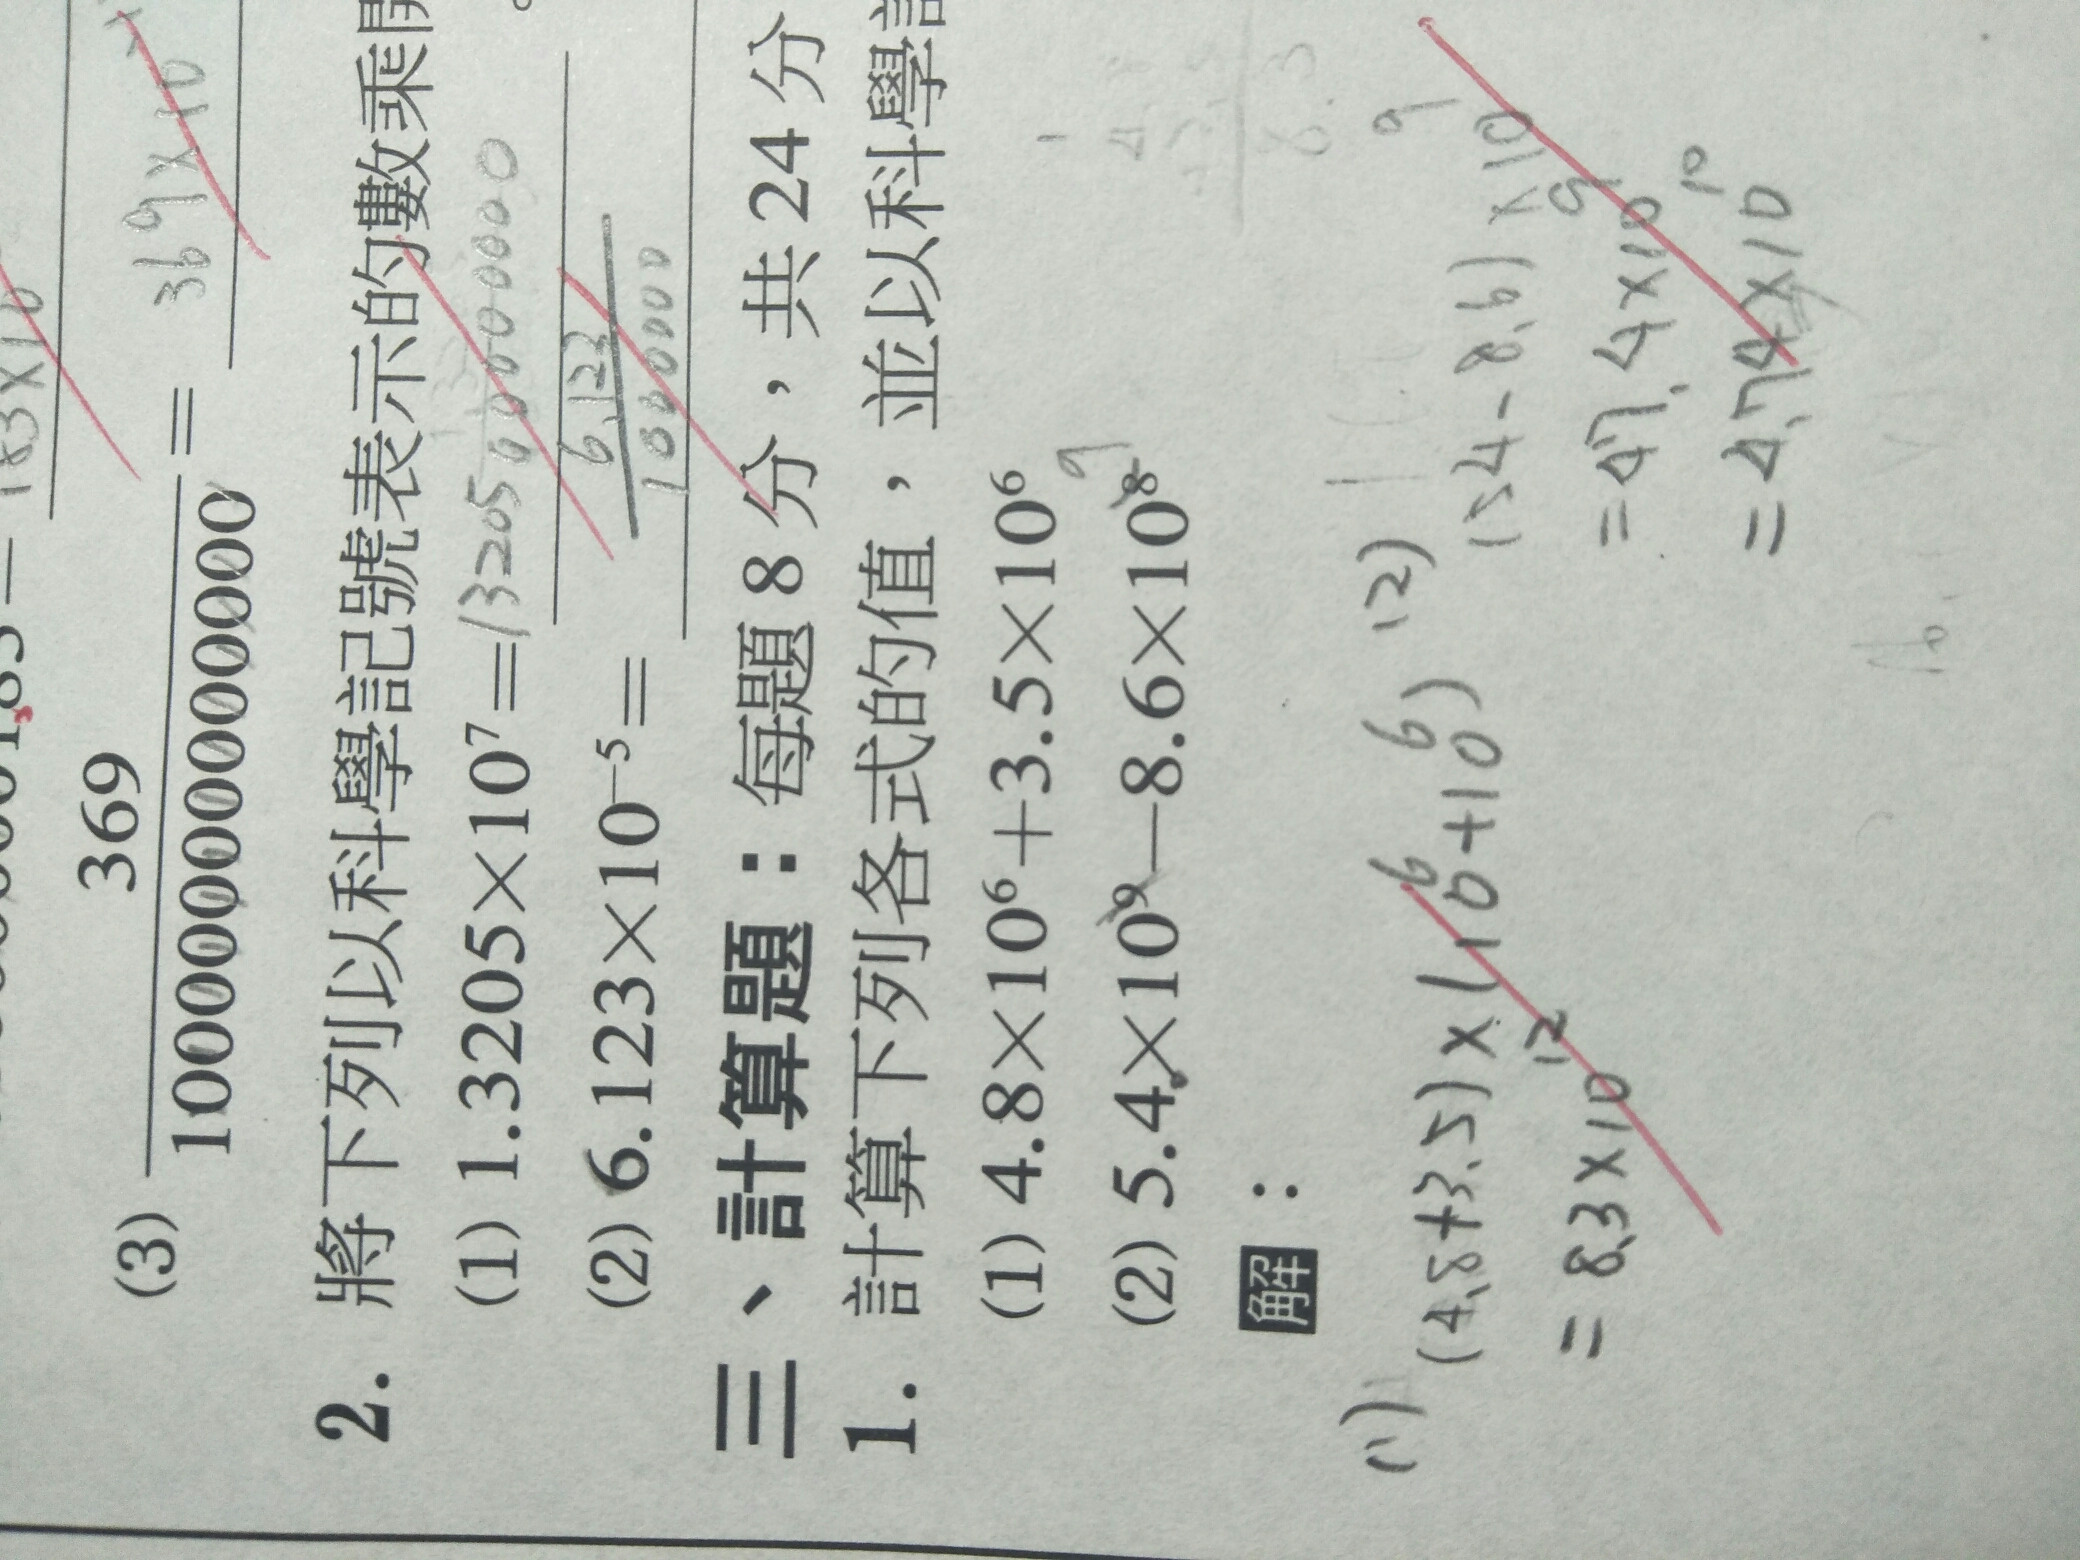 183×10
(3) 369/100000000000000 = 369×10
2. 將下列以科學記號表示的數乘開
(1) 1.3205×10⁷=
(2) 6.123×10⁻⁵= 6.123/100000
三、計算題：每題 8 分，共 24 分
1. 計算下列各式的值，並以科學記
(1) 4.8×10⁶+3.5×10⁶
(2) 5.4×10⁹−8.6×10⁸
8.3
解：
(1) (4.8+3.5)×(10⁶+10⁶)
=8.3×10¹²
(2) (54-8.6)×10⁹
=47.4×10⁹
=4.74×10¹⁰